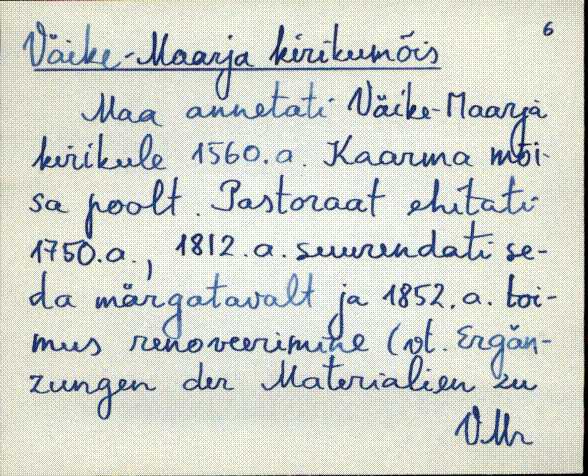 6
Väike-Maarja kirikumõis
Maa annetati Väike-Maarja
kirikule 1560.a. Kaarma mõi-
sa poolt. Pastoraat ehitati
1750.a., 1812.a. suurendati se-
da märgatavalt ja 1852.a. toi-
mus renoveerimine (vt. Ergän-
zungen der Materialien zu
VMr